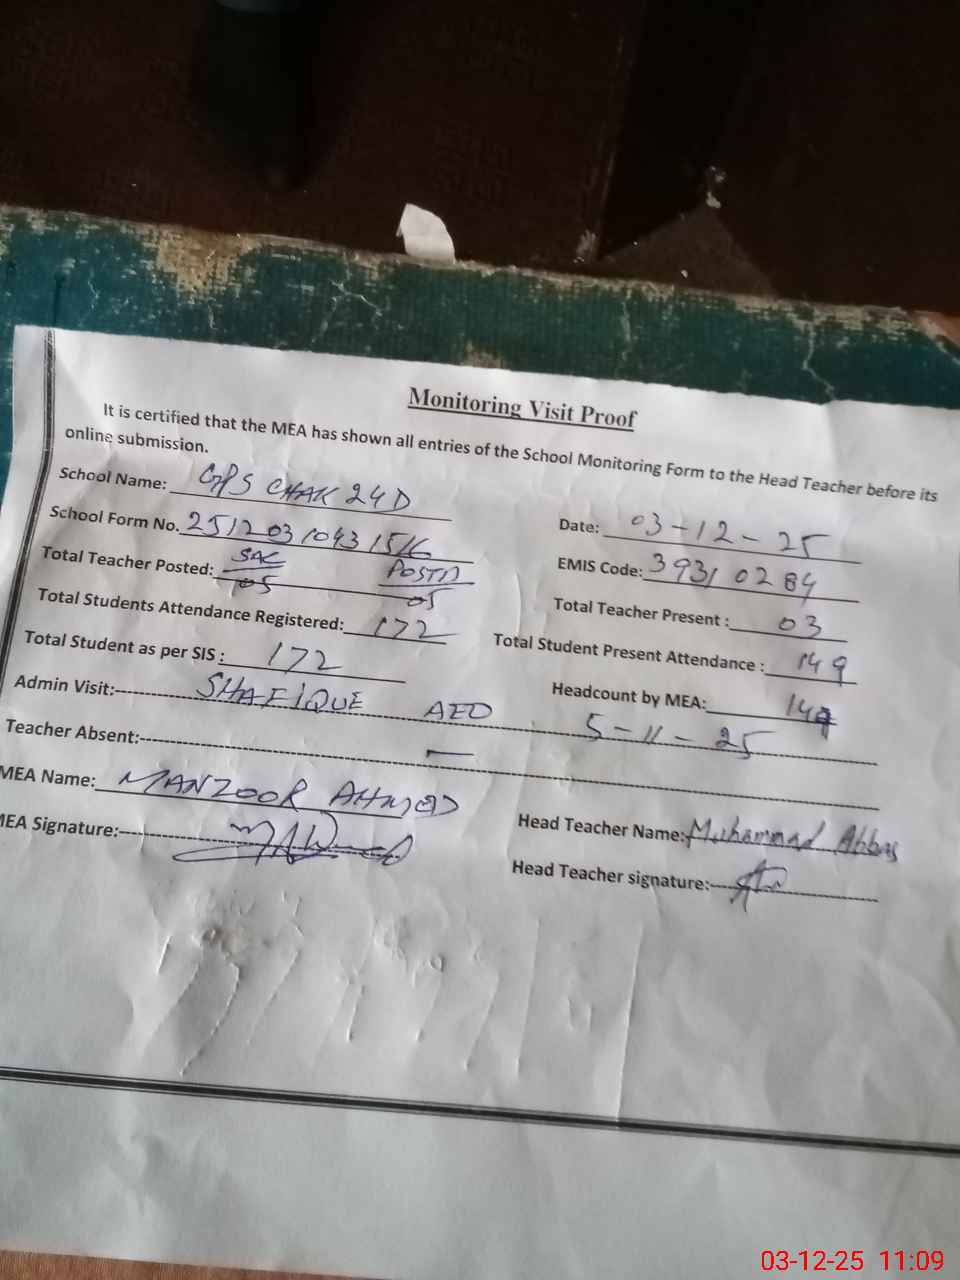 Monitoring Visit Proof
It is certified that the MEA has shown all entries of the School Monitoring Form to the Head Teacher before its
online submission.
School Name: GPS CHAK 24D
Date: 03-12-25
School Form No. 2512031093 1516
EMIS Code: 39310284
Total Teacher Posted: SAC 05 POSTD 05
Total Teacher Present : 03
Total Students Attendance Registered: 172
Total Student Present Attendance : 149
Total Student as per SIS : 172
Headcount by MEA:
Admin Visit: SHAFIQUE AEO 5-11-25
Teacher Absent: —
MEA Name: MANZOOR AHMED
Head Teacher Name: Muhammad Abbas
MEA Signature:
Head Teacher signature:
03-12-25 11:09